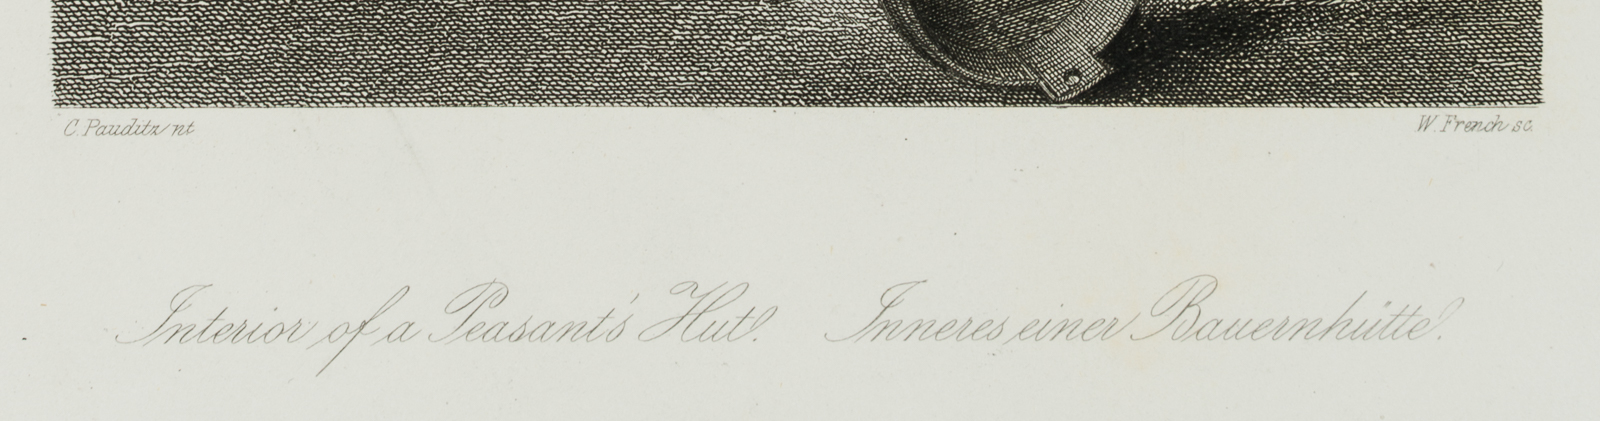 C. Pauditz nt
W. French sc.
Interior of a Peasant's Hut. Inneres einer Bauernhütte.